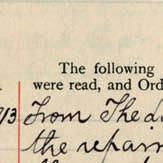 The following
were read, and Ord
/13 From The d
the repairin